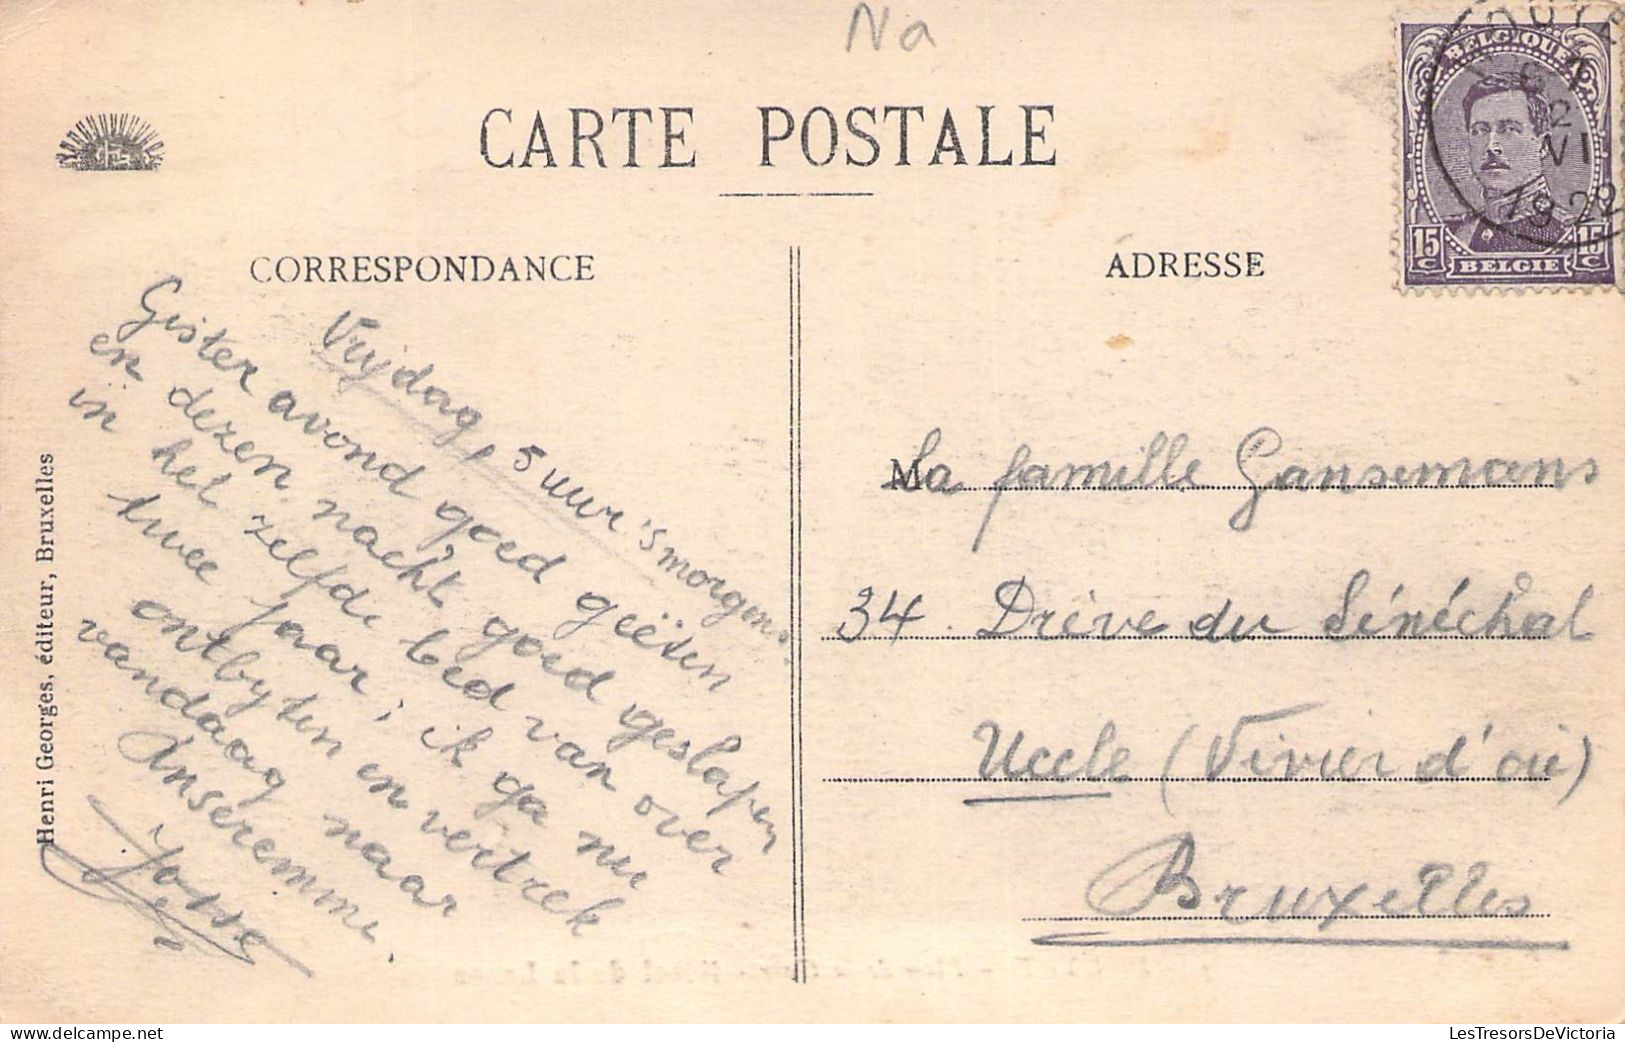 Na
CARTE POSTALE
CORRESPONDANCE
ADRESSE
BELGIQUE
15 C
15 C
BELGIE
2
VI
1922
Vrijdag, 5 uur 's morgens.
Gister avond goed geëten
en dezen nacht goed geslapen
in het zelfde bed van over
twee jaar; ik ga nu
ontbyten en vertrek
vandaag naar
Anseremme.
Josse
La famille Gansemans
34 Drève du Sénéchal
Uccle (Vivier d'oie)
Bruxelles
Henri Georges, éditeur, Bruxelles
LesTresorsDeVictoria